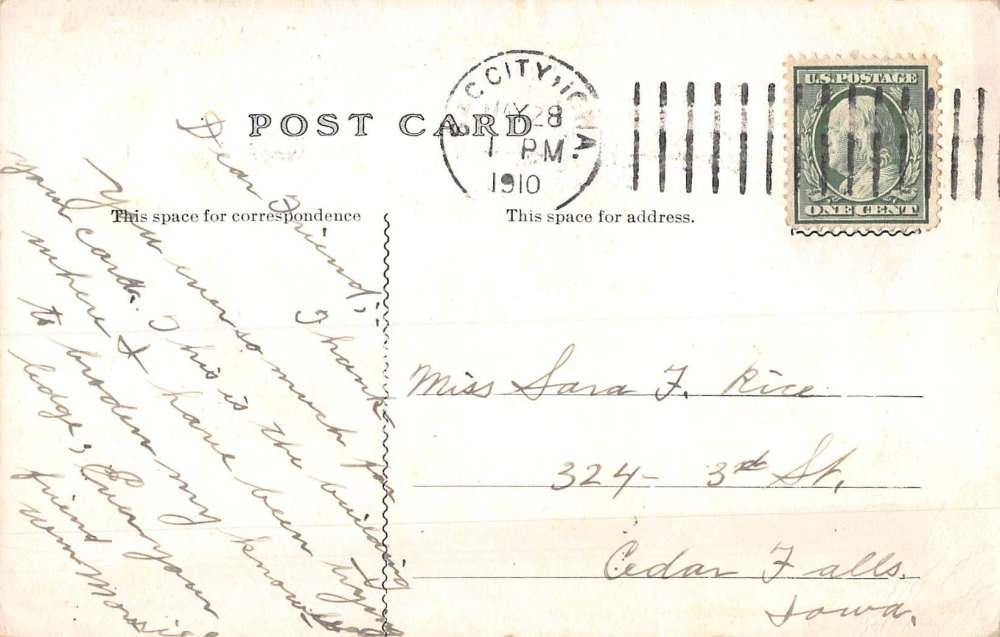 POST CARD
C CITY, IOWA.
MAY 28
1 PM
1910
U.S. POSTAGE
ONE CENT
This space for correspondence
This space for address.
Dear Friend;
Thank
you ever so much for
your card. This is the building
where I have been trying
to broden my know-
ledge; Ever your
friend
Miss Sara F. Rice
324- 3rd St,
Cedar Falls,
Iowa.